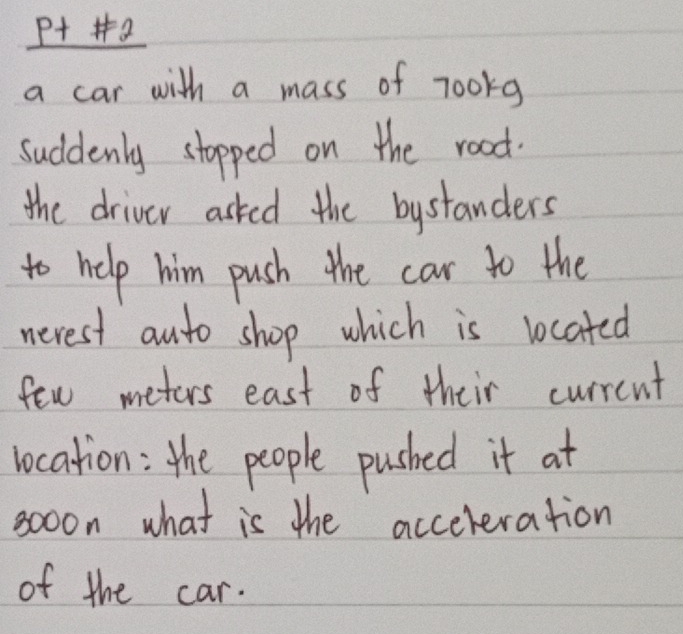 Pt #2
a car with a mass of 700kg
suddenly stopped on the road.
the driver asked the bystanders
to help him push the car to the
nerest auto shop which is located
few meters east of their current
location: the people pushed it at
3000n what is the acceleration
of the car.